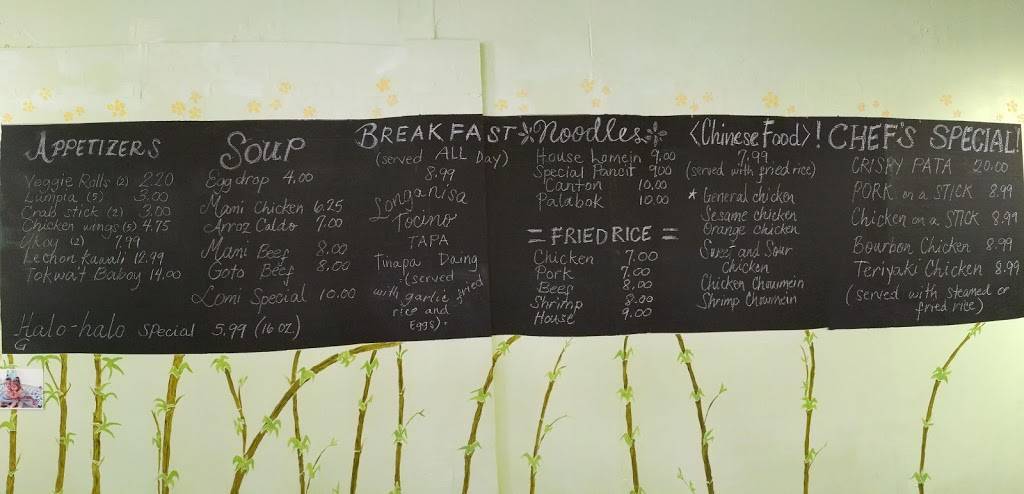 APPETIZERS
Veggie Rolls (2) 2.20
Lumpia (5) 5.00
Crab stick (2) 3.00
Chicken wings (5) 4.75
Ukoy (2) 7.99
Lechon Kawali 12.99
Tokwa't Baboy 14.00
Halo-halo special 5.99 (16 oz)
SOUP
Egg drop 4.00
Mami Chicken 6.25
Arroz Caldo 7.00
Mami Beef 8.00
Goto Beef 8.00
Lomi Special 10.00
BREAKFAST
(served ALL Day)
8.99
Longanisa
Tocino
TAPA
Tinapa Daing
(served
with garlic fried
rice and
Eggs).
Noodles
House Lomein 9.00
Special Pancit 9.00
Canton 10.00
Palabok 10.00
= FRIED RICE =
Chicken 7.00
Pork 7.00
Beef 8.00
Shrimp 8.00
House 9.00
<Chinese Food>
7.99
(served with fried rice)
* General chicken
Sesame chicken
Orange chicken
Sweet and Sour
Chicken
Chicken Chowmein
Shrimp Chowmein
! CHEF'S SPECIAL!
CRISPY PATA 20.00
PORK on a STICK 8.99
Chicken on a STICK 8.99
Bourbon Chicken 8.99
Teriyaki Chicken 8.99
(served with steamed or
fried rice)